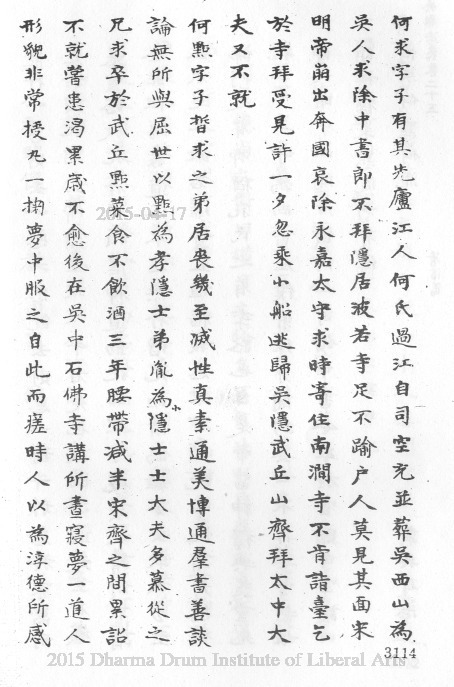 何求字子有其先廬江人何氏過江自司空充並葬吳西山為
吳人求除中書郎不拜隱居波若寺足不踰户人莫見其面宋
明帝崩出奔國哀除永嘉太守求時寄住南澗寺不肯詣臺乞
於寺拜受見許一夕忽乘小船逃歸吳隱武丘山齊拜太中大
夫又不就
何點字子晳求之弟居喪幾至減性真素通美博通羣書善談
論無所與屈世以點為孝隱士弟胤為小隱士士大夫多慕從之
兄求卒於武丘點菜食不飲酒三年腰帶減半宋齊之間累詔
不就嘗患渴累歲不愈後在吳中石佛寺講所晝寢夢一道人
形貌非常授丸一掬夢中服之自此而瘥時人以為淳德所感
3114
2015-04-17
2015 Dharma Drum Institute of Liberal Arts